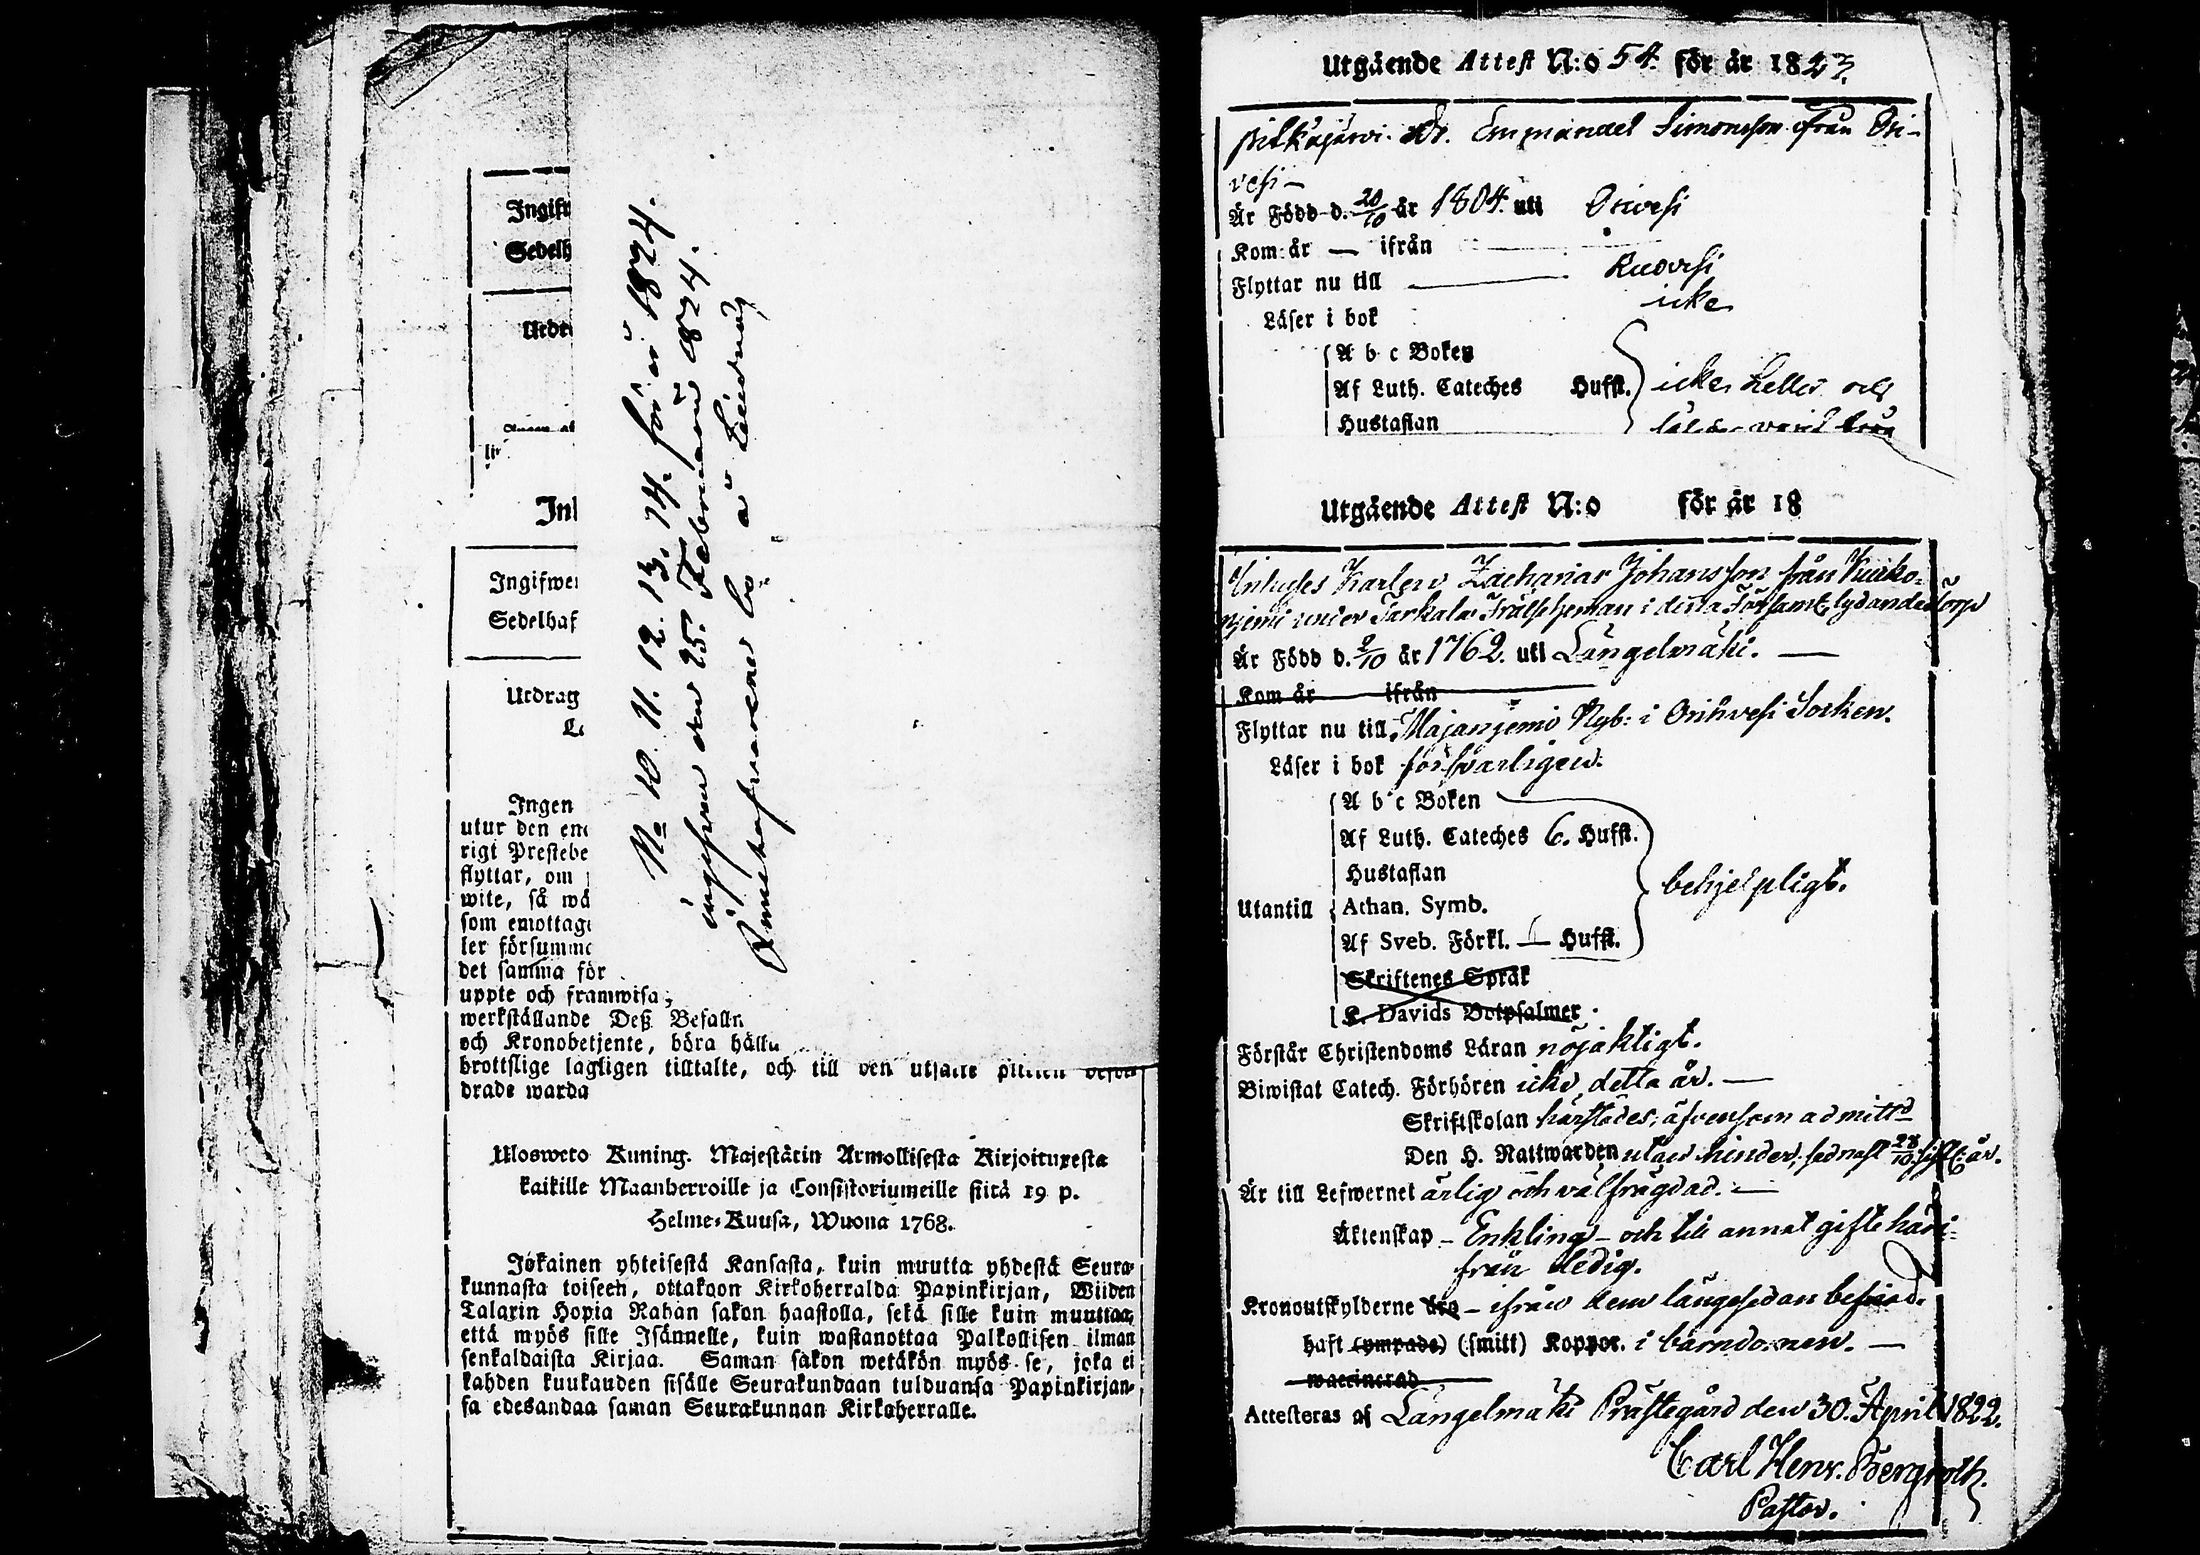 Ingift
Sedelh
Utdr
Inl
Ingifwer
Sedelhaf
Utdrag
Ingen
utur den
rigt Prestebe
flyttar, om
wite, så wä
som emottage
ler försumme
det samma för
uppte och framwisa,
werkställande Deß Befalln
och Kronobetjente, böra hålla
brottslige lagligen tilltalte, och till den utsatte
drade warda
No 10. 11. 12. 13. 14. för år 1824.
den 25. Februarii 1824.
Ulosweto Kuning. Majestätin Armollisesta Kirjoituxesta
kaikille Maanherroille ja Consistoriumeille siitä 19 p.
Helme-Kuusa, Wuona 1768.
Jokainen yhteisestä Kansasta, kuin muutta yhdestä Seura-
kunnasta toiseen, ottakoon Kirkoherralda Papinkirjan, Wiiden
Talarin Hopia Rahan sakon haastolla, sekä sille kuin muuttaa,
että myös sille Isännelle, kuin wastanottaa Palkollisen ilman
senkaldaista Kirjaa. Saman sakon wetäkön myös se, joka ei
kahden kuukauden sisälle Seurakundaan tulduansa Papinkirjan-
sa edesandaa saman Seurakunnan Kirkoherralle.
Utgående Attest N:o 54. för år 1823.
Pitkäjärvi. Dr. Emmanuel Simonsson från Ori-
vesi —
Är Född d. 20/10 år 1804. uti Orivesi
Kom år — ifrån
Flyttar nu till Ruovesi
Läser i bok icke
A b c Boken
Af Luth. Cateches Hufst. icke heller
Hustaflan
Utgående Attest N:o för år 18
Inhyses Karlen Zacharias Johansson från Kuiko-
niemi under Tarkala Frälsehemman i detta Församl. lydande torp
Är Född d. 9/10 år 1762. uti Längelmäki. —
Kom år ifrån
Flyttar nu till Majaniemi Nyb: i Orihvesi Socken.
Läser i bok försvarligen.
A b c Boken
Af Luth. Cateches 6. Hufst.
Hustaflan
behjelpligt.
Utantill Athan. Symb.
Af Sveb. Förkl. — Hufst.
Skriftenes Språk
K. Davids Botpsalmer
Förstår Christendoms Läran nöjaktigt.
Biwistat Catech. Förhören icke detta år. —
Skriftskolan härstädes, äfvensom admitt:d
Den H. Nattwarden utan hinder, sednast 28/10 sistl. år.
Är till Lefwernet ärlig och välfrägdad. —
Äktenskap – Enkling – och till annat gifte häri-
från ledig.
Kronoutskylderne äro – ifrån dem längesedan befriad.
haft (ympade) (smitt) Koppor. i barndomen. —
waccinerad
Attesteras af Längelmäki Prästegård den 30. April 1822.
Carl Henr. Bergroth.
Pastor.